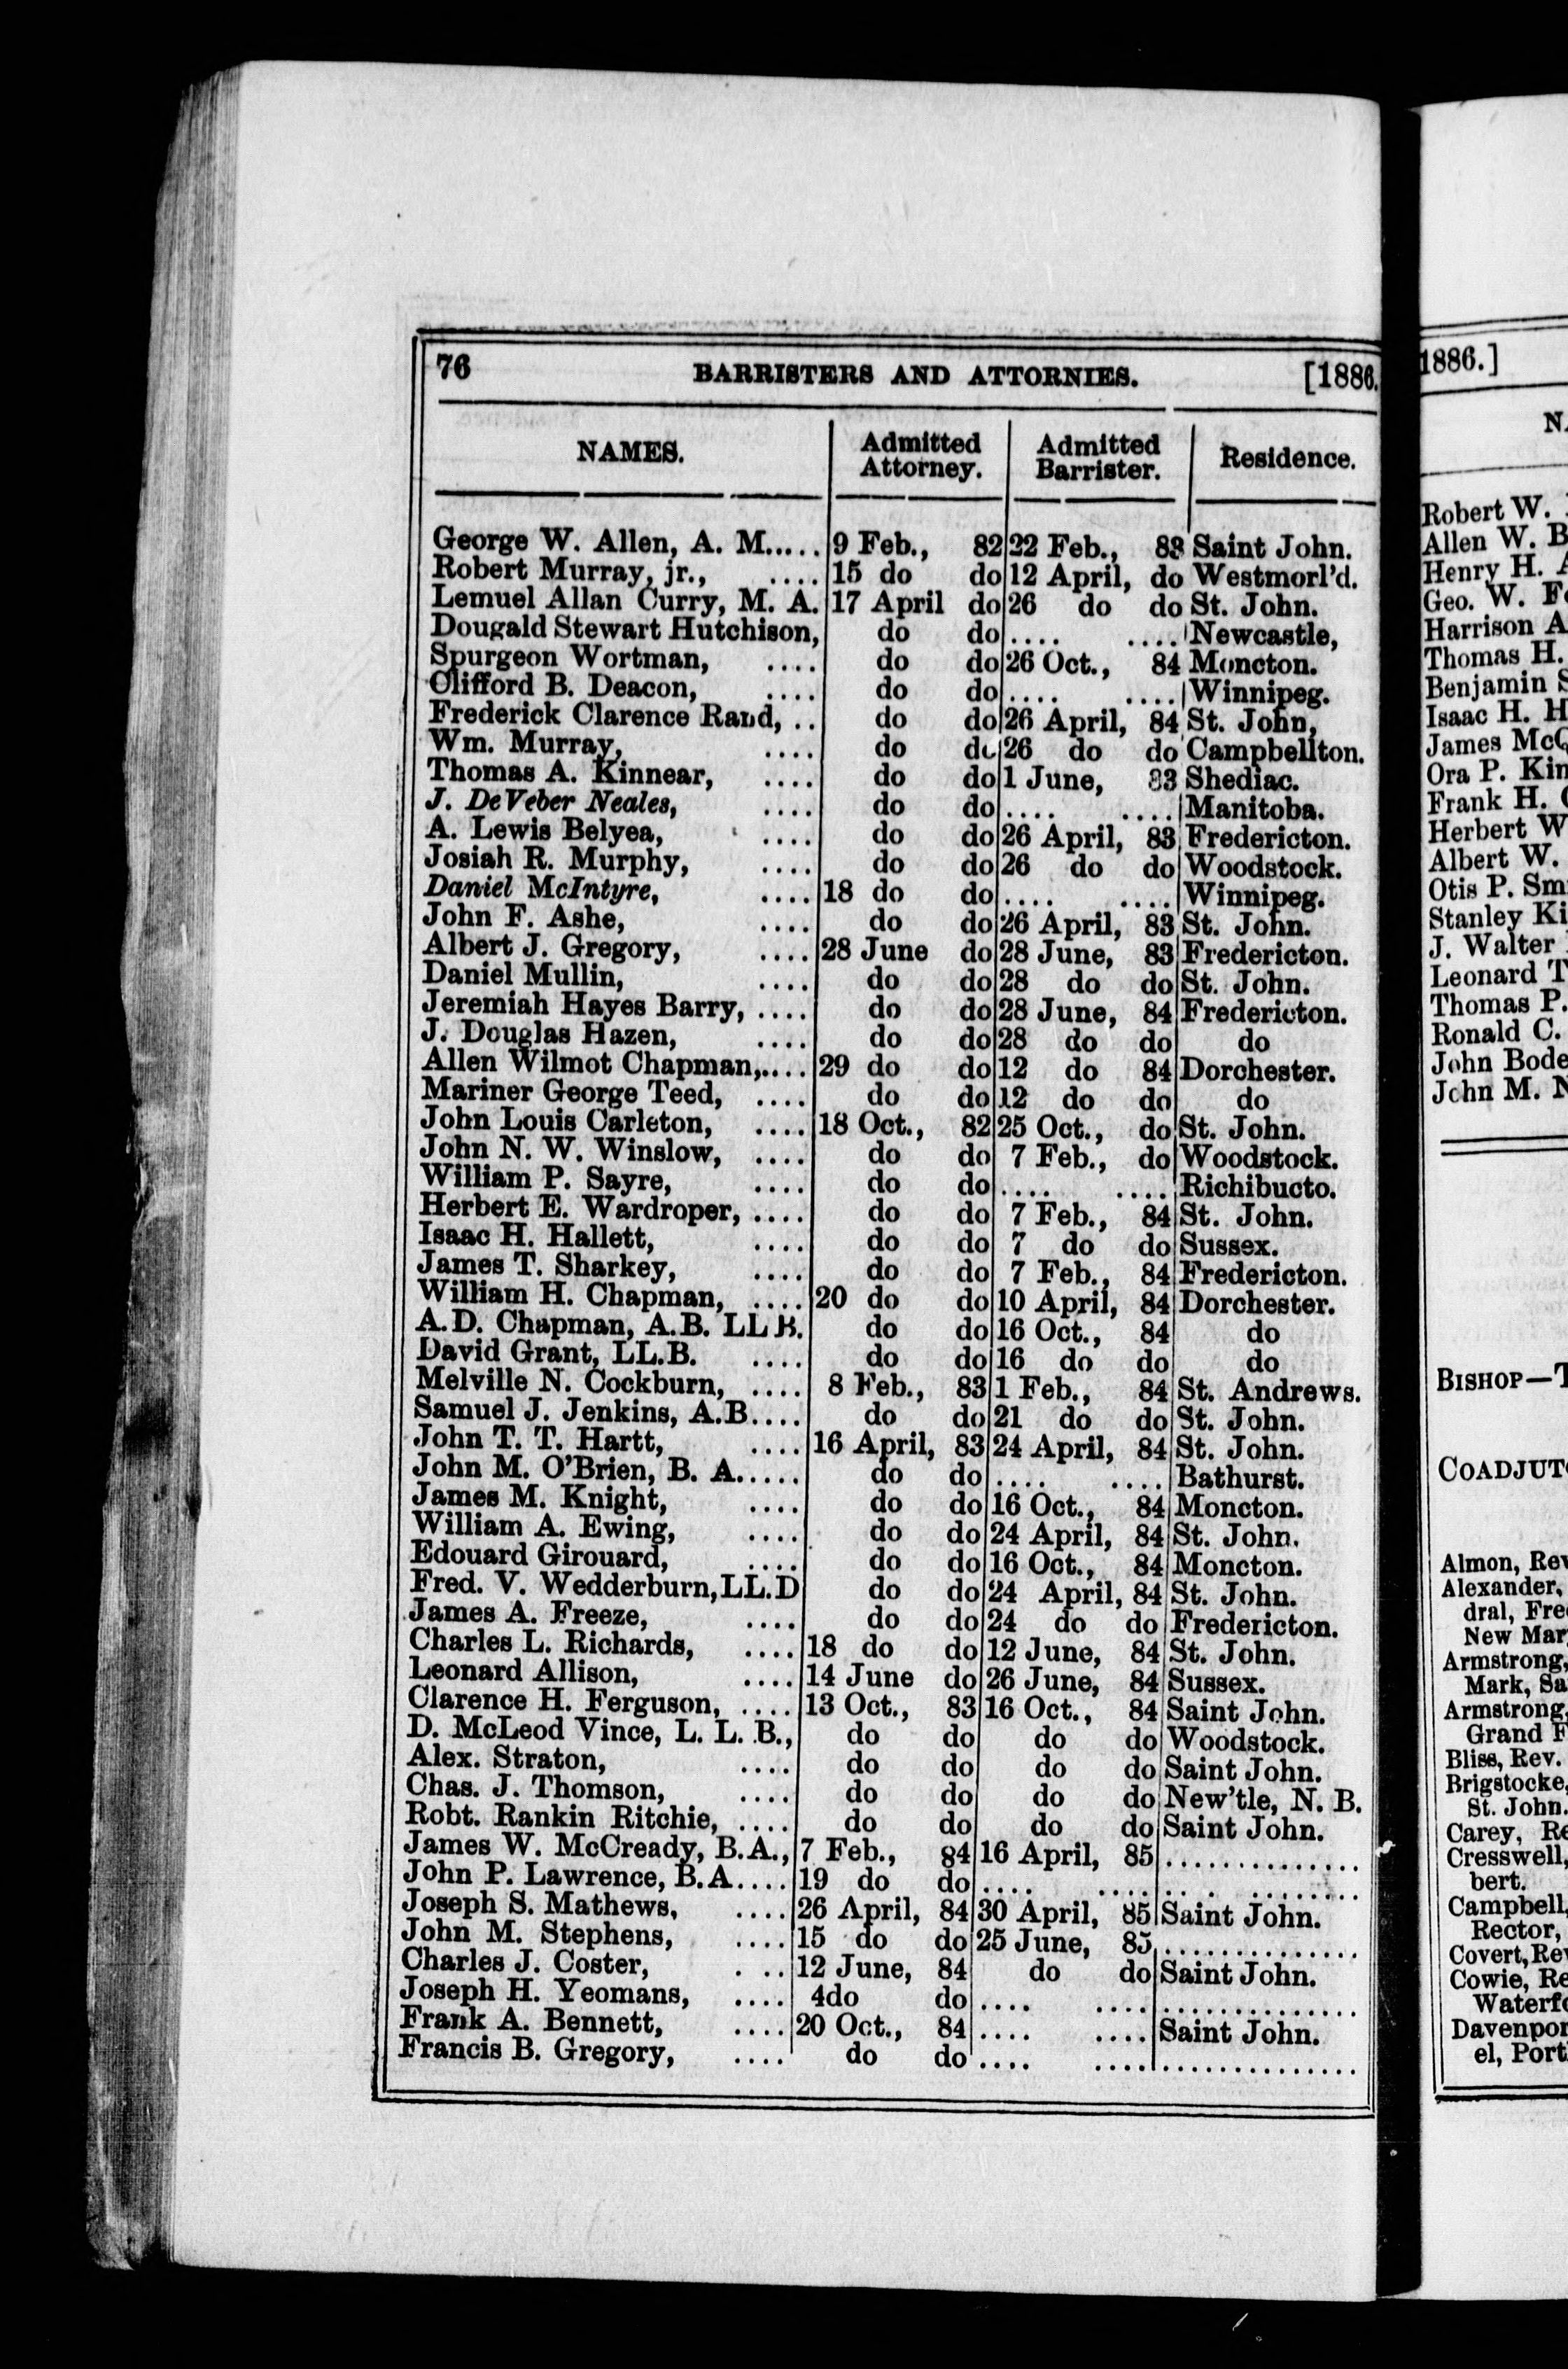 76 BARRISTERS AND ATTORNIES. [1886.
NAMES. Admitted Attorney. Admitted Barrister. Residence.
George W. Allen, A. M..... 9 Feb., 82 22 Feb., 83 Saint John.
Robert Murray, jr., .... 15 do do 12 April, do Westmorl'd.
Lemuel Allan Curry, M. A. 17 April do 26 do do St. John.
Dougald Stewart Hutchison, do do .... .... Newcastle,
Spurgeon Wortman, .... do do 26 Oct., 84 Moncton.
Clifford B. Deacon, .... do do .... .... Winnipeg.
Frederick Clarence Rand, .. do do 26 April, 84 St. John,
Wm. Murray, .... do do 26 do do Campbellton.
Thomas A. Kinnear, .... do do 1 June, 83 Shediac.
J. DeVeber Neales, .... do do .... .... Manitoba.
A. Lewis Belyea, .... do do 26 April, 83 Fredericton.
Josiah R. Murphy, .... do do 26 do do Woodstock.
Daniel McIntyre, .... 18 do do .... .... Winnipeg.
John F. Ashe, .... do do 26 April, 83 St. John.
Albert J. Gregory, .... 28 June do 28 June, 83 Fredericton.
Daniel Mullin, .... do do 28 do do St. John.
Jeremiah Hayes Barry, .... do do 28 June, 84 Fredericton.
J. Douglas Hazen, .... do do 28 do do do
Allen Wilmot Chapman,.... 29 do do 12 do 84 Dorchester.
Mariner George Teed, .... do do 12 do do do
John Louis Carleton, .... 18 Oct., 82 25 Oct., do St. John.
John N. W. Winslow, .... do do 7 Feb., do Woodstock.
William P. Sayre, .... do do .... .... Richibucto.
Herbert E. Wardroper, .... do do 7 Feb., 84 St. John.
Isaac H. Hallett, .... do do 7 do do Sussex.
James T. Sharkey, .... do do 7 Feb., 84 Fredericton.
William H. Chapman, .... 20 do do 10 April, 84 Dorchester.
A.D. Chapman, A.B. LL B. do do 16 Oct., 84 do
David Grant, LL.B. .... do do 16 do do do
Melville N. Cockburn, .... 8 Feb., 83 1 Feb., 84 St. Andrews.
Samuel J. Jenkins, A.B.... do do 21 do do St. John.
John T. T. Hartt, .... 16 April, 83 24 April, 84 St. John.
John M. O'Brien, B. A..... do do .... .... Bathurst.
James M. Knight, .... do do 16 Oct., 84 Moncton.
William A. Ewing, .... do do 24 April, 84 St. John.
Edouard Girouard, .... do do 16 Oct., 84 Moncton.
Fred. V. Wedderburn,LL.D do do 24 April, 84 St. John.
James A. Freeze, .... do do 24 do do Fredericton.
Charles L. Richards, .... 18 do do 12 June, 84 St. John.
Leonard Allison, .... 14 June do 26 June, 84 Sussex.
Clarence H. Ferguson, .... 13 Oct., 83 16 Oct., 84 Saint John.
D. McLeod Vince, L. L. B., do do do do Woodstock.
Alex. Straton, .... do do do do Saint John.
Chas. J. Thomson, .... do do do do New'tle, N. B.
Robt. Rankin Ritchie, .... do do do do Saint John.
James W. McCready, B.A., 7 Feb., 84 16 April, 85 ..............
John P. Lawrence, B.A.... 19 do do .... .... ..............
Joseph S. Mathews, .... 26 April, 84 30 April, 85 Saint John.
John M. Stephens, .... 15 do do 25 June, 85 ..............
Charles J. Coster, . .. 12 June, 84 do do Saint John.
Joseph H. Yeomans, .... 4do do .... .... ..............
Frank A. Bennett, .... 20 Oct., 84 .... .... Saint John.
Francis B. Gregory, .... do do .... .... ..............
1886.]
Robert W.
Allen W. B
Henry H.
Geo. W. F
Harrison A
Thomas H.
Benjamin S
Isaac H. H
James McQ
Ora P. Kin
Frank H.
Herbert W
Albert W.
Otis P. Sm
Stanley Ki
J. Walter
Leonard T
Thomas P.
Ronald C.
John Bode
John M. N
BISHOP—T
COADJUT
Almon, Rev
Alexander,
dral, Fre
New Mar
Armstrong,
Mark, Sa
Armstrong,
Grand F
Bliss, Rev.
Brigstocke,
St. John.
Carey, Re
Cresswell,
bert.
Campbell,
Rector,
Covert, Rev
Cowie, Re
Waterfo
Davenpor
el, Port